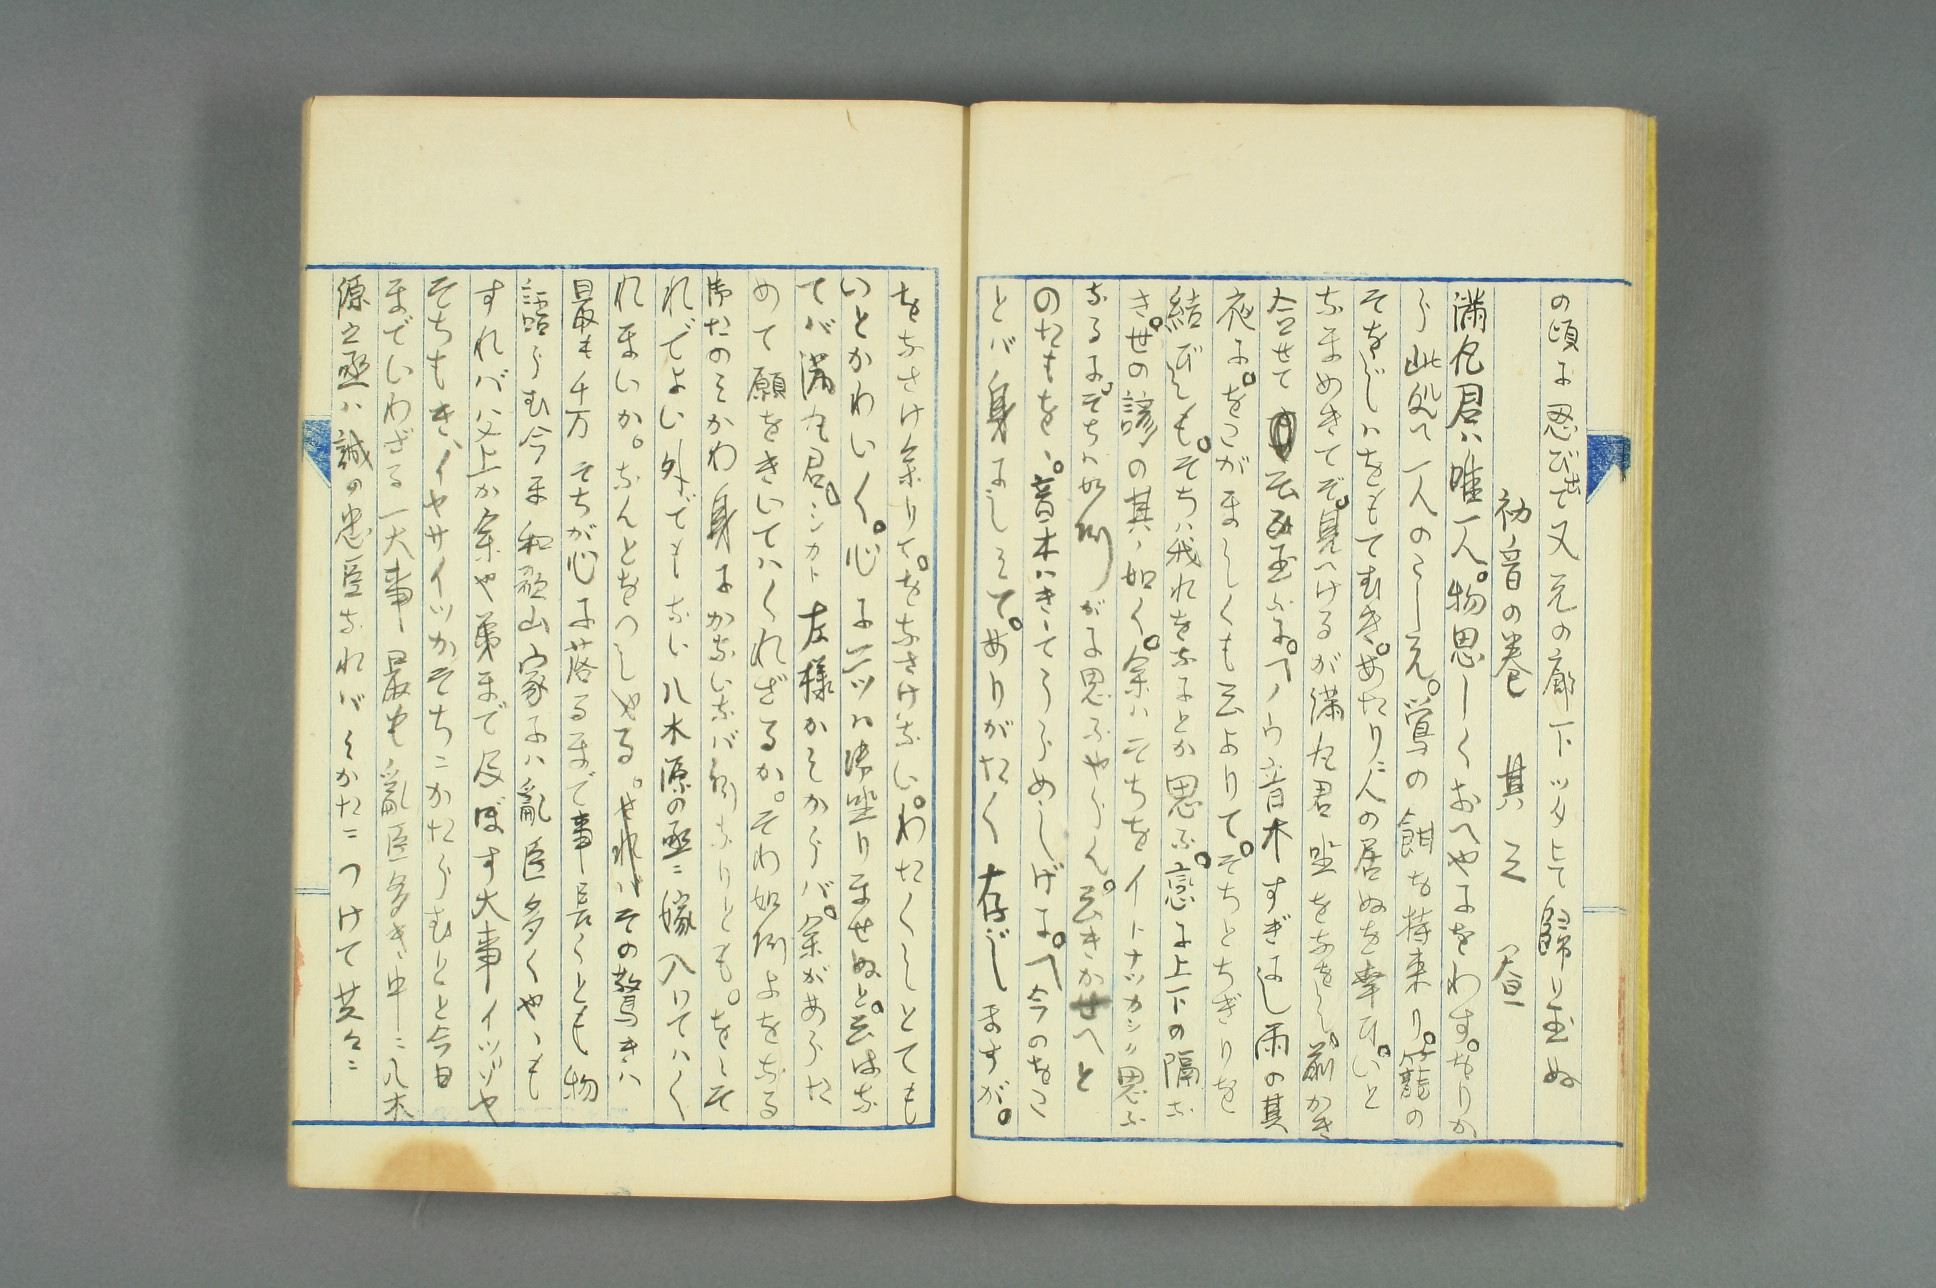 の頃に忍び出で又元の廊下ツタヒて歸り玉ぬ
初音の巻　其三　昼
満丸君ハ唯一人。物思しくおへやにをわす。をりか
ら此処へ一人のこし元。鶯の餌を持来り。篭の
そをじハをもてむき。あたりニ人の居ぬを幸ひ。いと
なまめきてぞ。見へけるが満丸君坐をなをし。前かき
合せて　云玉ふに。へノウ音木すぎにし雨の其
夜に。をこがましくも云よりて。そちとちぎりを
結びしも。そちハ我れをなにとか思ふ。恋に上下の隔な
き。世の諺の其ノ如く。余ハそちをイトナツカシク思ふ
なるに。そちハ如何がに思ふやらん。云きかせへと
のたもを、。音木ハきてうらめしげに。へ今のをこ
とバ身にしみて。ありがたく存じますが。
をなさけ余りて。をなさけない。わたくしとても
いとかわいく。心に二ツハ御坐りませぬと。云はな
てバ満丸君。シカト左様かみからバ。余があらた
めて願をきいてハくれざるか。そわ如何よをなる
御たのみかわ身にかないなバ何なりとも。をしそ
れでよい外でもない八木源の丞ニ嫁入りてハく
れまいか。なんとをつしやる。せればその驚きハ
最も千万そちが心に落るまで事長くとも物
語らむ今ま和歌山家にハ亂臣多くやゝも
すれバ父上か余や弟まで及ぼす大事イツゾや
そちもきゝイヤサイツかそちニかたらむとと今日
までいわざる一大事最も亂臣多き中ニ八木
源之丞ハ誠の忠臣なれバくかたニつけて共々ニ